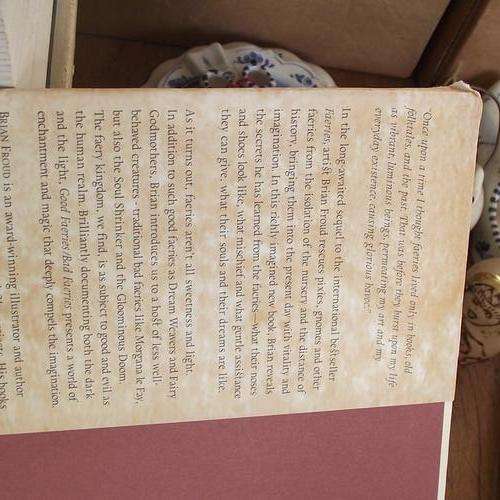 "Once upon a time I thought faeries lived only in books, old
folktales, and the past. That was before they burst upon my life
as vibrant, luminous beings, permeating my art and my
everyday existence, causing glorious havoc."
In the long-awaited sequel to the international bestseller
Faeries, artist Brian Froud rescues pixies, gnomes and other
faeries from the isolation of the nursery and the distance of
history, bringing them into the present day with vitality and
imagination. In this richly imagined new book, Brian reveals
the secrets he has learned from the faeries - what their noses
and shoes look like, what mischief and what gentle assistance
they can give, what their souls and their dreams are like.
As it turns out, faeries aren't all sweetness and light.
In addition to such good faeries as Dream Weavers and Fairy
Godmothers, Brian introduces us to a host of less well-
behaved creatures - traditional bad faeries like Morgana le Fay,
but also the Soul Shrinker and the Gloominous Doom.
The faery kingdom, we find, is as subject to good and evil as
the human realm. Brilliantly documenting both the dark
and the light, Good Faeries/Bad Faeries presents a world of
enchantment and magic that deeply compels the imagination.
BRIAN FROUD is an award-winning illustrator and author
His books